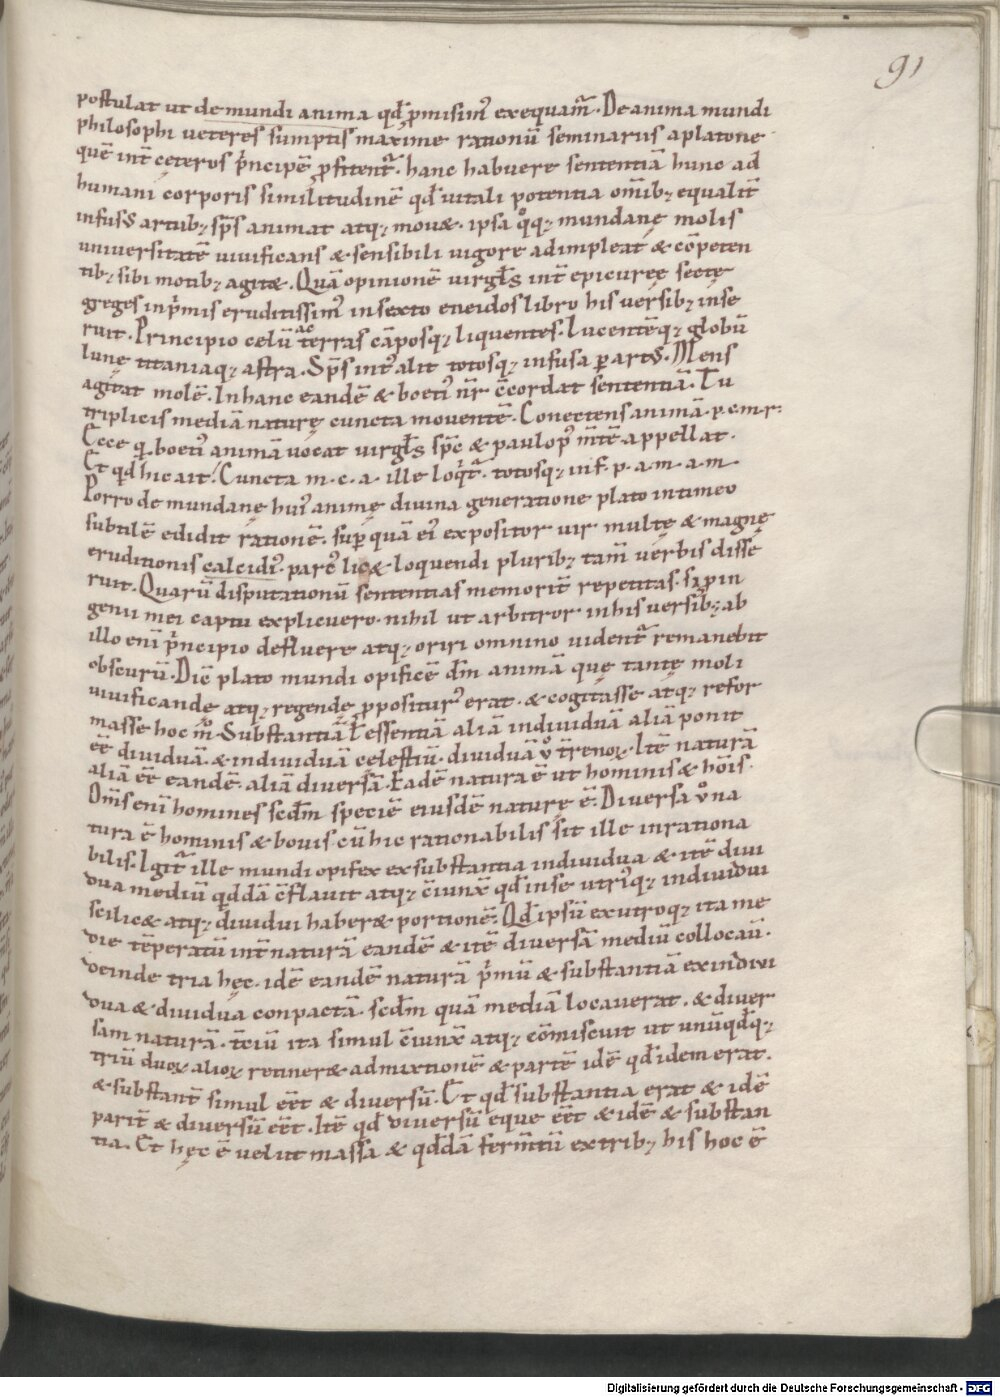 91
postulat ut de mundi anima qđ p̄misim᷒ exequam̄. De anima mundi
philosophi veteres sumptis maxime rationū seminariis a platone
quē int̄ ceteros p̄ncipē p̄fitent᷒. hanc habuere sententiā hunc ad
humani corporis similitudinē qđ vitali potentia om̄ib; equalit̄
infusus artub; sp̄s animat atq; mouet. ipsa q̊q; mundanę molis
universitatē vivificans & sensibili vigore adimpleat & cōpeten
tib; sibi motib; agitet. Quā opinionē virgił͛s int̄ epicureę sectę
greges inp̄mis eruditissim᷒ in sexto eneidos libro his versib; inse
ruit. Principio celū ac terras cāposq; liquentes. Lucentēq; globū
lunę titaniaq; astra. Sp̄s int᷒ alit totosq; infusa p̱ art᷒. Mens
agitat molē. In hanc eandē & boeti᷒ nr̄ c̄cordat sententiā. Tu
triplicis mediā naturę cuncta moventē. Conectens animā. p. c. m. r:
Ecce qđ boeti᷒ animā vocat virgił͛s sp̄c & paulo p᷒ m̄te appellat.
Et qđ hic ait. Cuncta m. c. a. ille loq̄t᷒. totosq; in f. p. a. m. a. m
Porro de mundanę hui᷒ animę divina generatione plato in timeo
subtilē edidit rationē. sup̱ quā ei᷒ expositor vir multę & magnę
eruditionis calcidi᷒. parc᷒ licet loquendi plurib; tam̄ verbis disse
ruit. Quarū disputationū sententias memorit̄ repetitas. si p̱ in
genii mei captū explicuero. nihil ut arbitror in his versib; ab
illo eni p̄ncipio defluere atq; oriri omnino vident᷒ remanebit
obscurū. Dic̄ plato mundi opificē dm̄ animā quę tantę moli
vivificande atq; regendę p̱positur᷒ erat. & cogitasse atq; refor
masse hoc m̊. Substantiā ł essentiā aliā individuā aliā ponit
eē dividuā. & individuā celestiū. dividuā v̊ t̄renoꝝ. Itē naturā
aliā eē eandē. aliā diversā. Eadē natura ē ut hominis & hōis.
Om̄s eni homines scđm speciē eiusdē naturę ē. Diversa v̊ na
tura ē hominis & bovis. cū hic rationabilis sit ille inrationa
bilis. Igit᷒ ille mundi opifex ex substantia individua & itē divi
dua mediū qđdā c̄flavit atq; c̄iunx̄ qđ in se utri᷒q; individui
scilicet atq; dividui haberet portionē. Qđ ipsū ex utroq; ita me
die tēperatū int̄ naturā eandē & itē diversā mediū collocaū.
deinde tria hęc. idē eandē naturā p̄mū & substantiā ex indivi
dua & dividua conpactā. scđm quā mediā locaverat. & diver
sam naturā. t̄ciū ita simul c̄iunx̄ atq; cōmiscuit ut unūqđq;
triū duoꝝ alioꝝ retineret admixtionē & partē idē qđ idem erat.
& substant̄ simul eēt & diversū. Et qđ substantia erat & idē
parit̄ & diversū eēt. Itē qđ diversū eque eēt & idē & substan
tia. Et hęc ē velut massa & qđdā ferm̄tū ex trib; his hoc ē
Digitalisierung gefördert durch die Deutsche Forschungsgemeinschaft - DFG